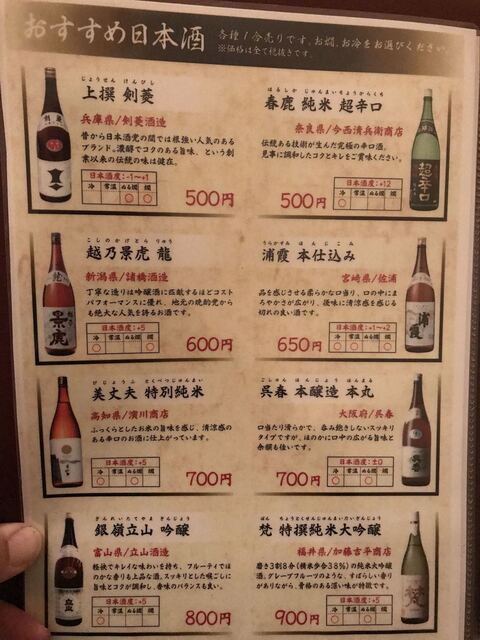 おすすめ日本酒
各種1合売りです。お燗、お冷をお選びください。
※価格は全て税抜きです。
じょうせん けんびし
上撰 剣菱
兵庫県/剣菱酒造
昔から日本酒党の間では根強い人気のある
ブランド。濃醇でコクのある旨味、という創
業以来の伝統の味は健在。
日本酒度:-1~+1
冷 常温 ぬる燗 燗
○ ○
500円
はるしか じゅんまいちょうからくち
春鹿 純米 超辛口
奈良県/今西清兵衛商店
伝統ある技術が生んだ究極の辛口酒。
見事に調和したコクとキレをご賞味ください。
日本酒度:+12
冷 常温 ぬる燗 燗
○
500円
こしのかげとら りゅう
越乃景虎 龍
新潟県/諸橋酒造
丁寧な造りは吟醸酒に匹敵するほどコスト
パフォーマンスに優れ、地元の晩酌党から
も絶大な人気を誇るお酒です。
日本酒度:+5
冷 常温 ぬる燗 燗
600円
うらかすみ ほんじこみ
浦霞 本仕込み
宮崎県/佐浦
品を感じさせる柔らかな口当り、口の中にま
ろやかさが広がり、後味に清涼感を感じる
切れの良い酒です。
日本酒度:+1~+2
冷 常温 ぬる燗 燗
650円
びじょうふ とくべつじゅんまい
美丈夫 特別純米
高知県/濱川商店
ふっくらとしたお米の旨味を感じ、清涼感の
ある辛口のお酒に仕上がっています。
日本酒度:+5
冷 常温 ぬる燗 燗
700円
ごしゅん ほんじょうぞう ほんまる
呉春 本醸造 本丸
大阪府/呉春
口当たり滑らかで、呑み飽きしないスッキリ
タイプですが、ほのかに口中の広がる旨味と
余韻も佳いです。
日本酒度:±0
冷 常温 ぬる燗 燗
700円
ぎんれいたてやま ぎんじょう
銀嶺立山 吟醸
富山県/立山酒造
軽快でキレイな味わいを持ち、フルーティでほ
のかな香りも上品な酒。スッキリとした喉ごしに
旨味とコクが調和し、香味のバランスも良い。
日本酒度:+5
冷 常温 ぬる燗 燗
800円
ぼん ちょうとくせんじゅんまいだいぎんじょう
梵 特撰純米大吟醸
福井県/加藤吉平商店
磨き3割8分(精米歩合38%)の純米大吟醸
酒。グレープフルーツのような、すばらしい香り
がありながら、骨格のある深い味が特徴です。
日本酒度:+5
冷 常温 ぬる燗 燗
900円